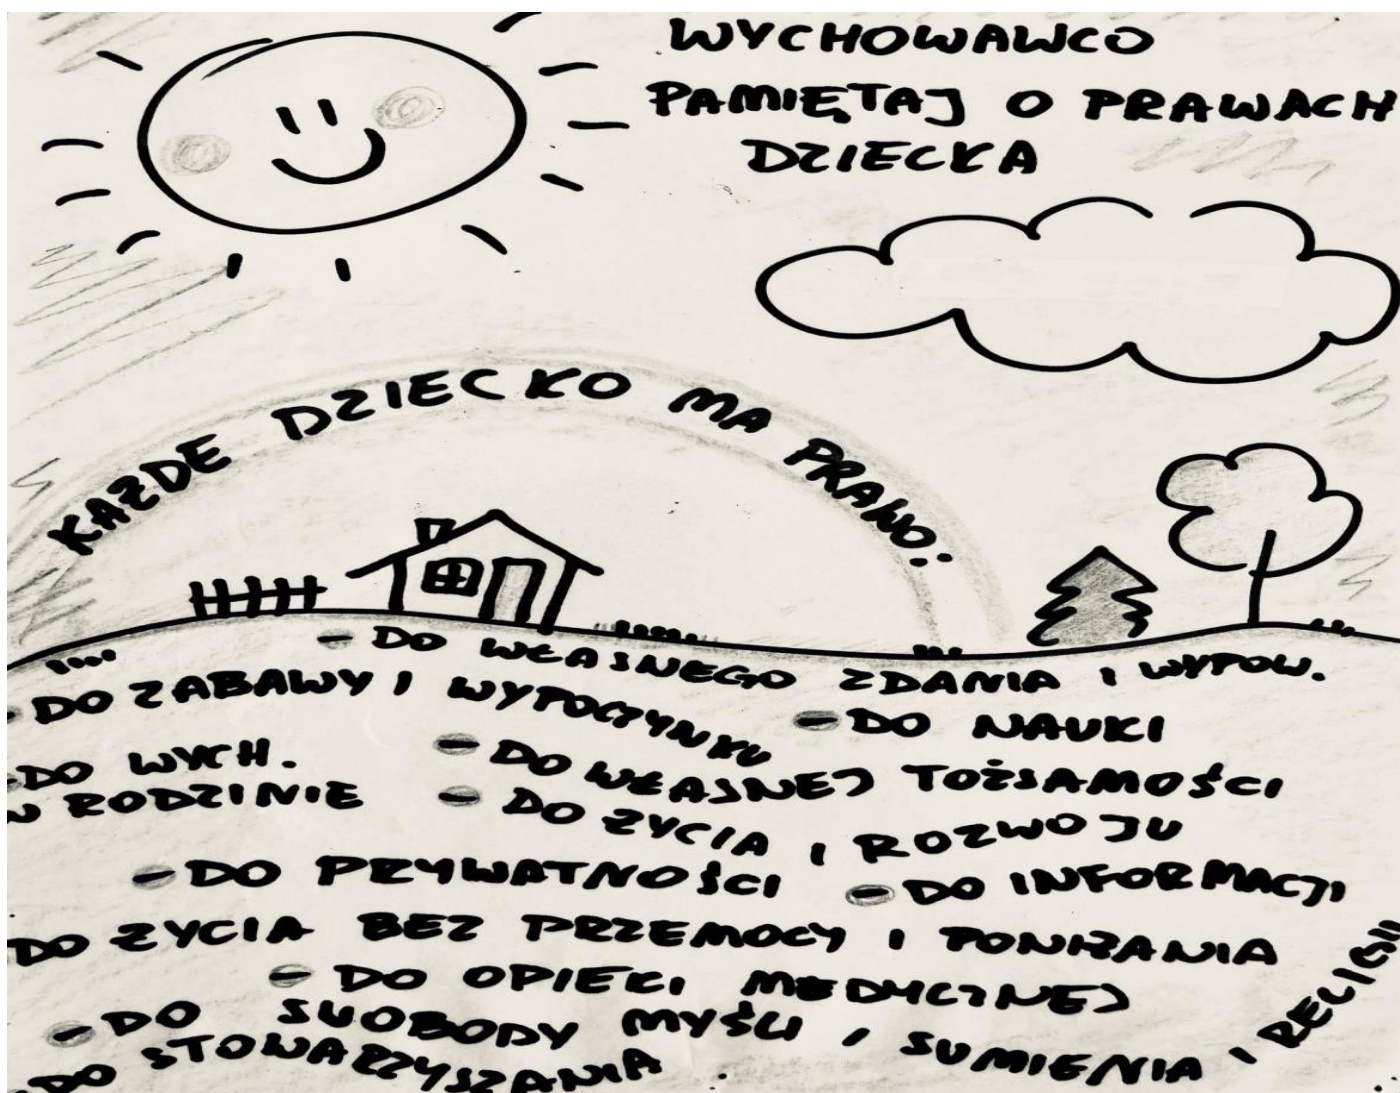 WYCHOWAWCO
PAMIĘTAJ O PRAWACH
DZIECKA
KAŻDE DZIECKO MA PRAWO:
- DO WŁASNEGO ZDANIA I WYPOW.
- DO ZABAWY I WYPOCZYNKU
- DO NAUKI
- DO WYCH.
W RODZINIE
- DO WŁASNEJ TOŻSAMOŚCI
- DO ŻYCIA I ROZWOJU
- DO PRYWATNOŚCI
- DO INFORMACJI
DO ŻYCIA BEZ PRZEMOCY I PONIŻANIA
- DO OPIEKI MEDYCZNEJ
- DO SWOBODY MYŚLI, SUMIENIA I RELIGII
- DO STOWARZYSZANIA